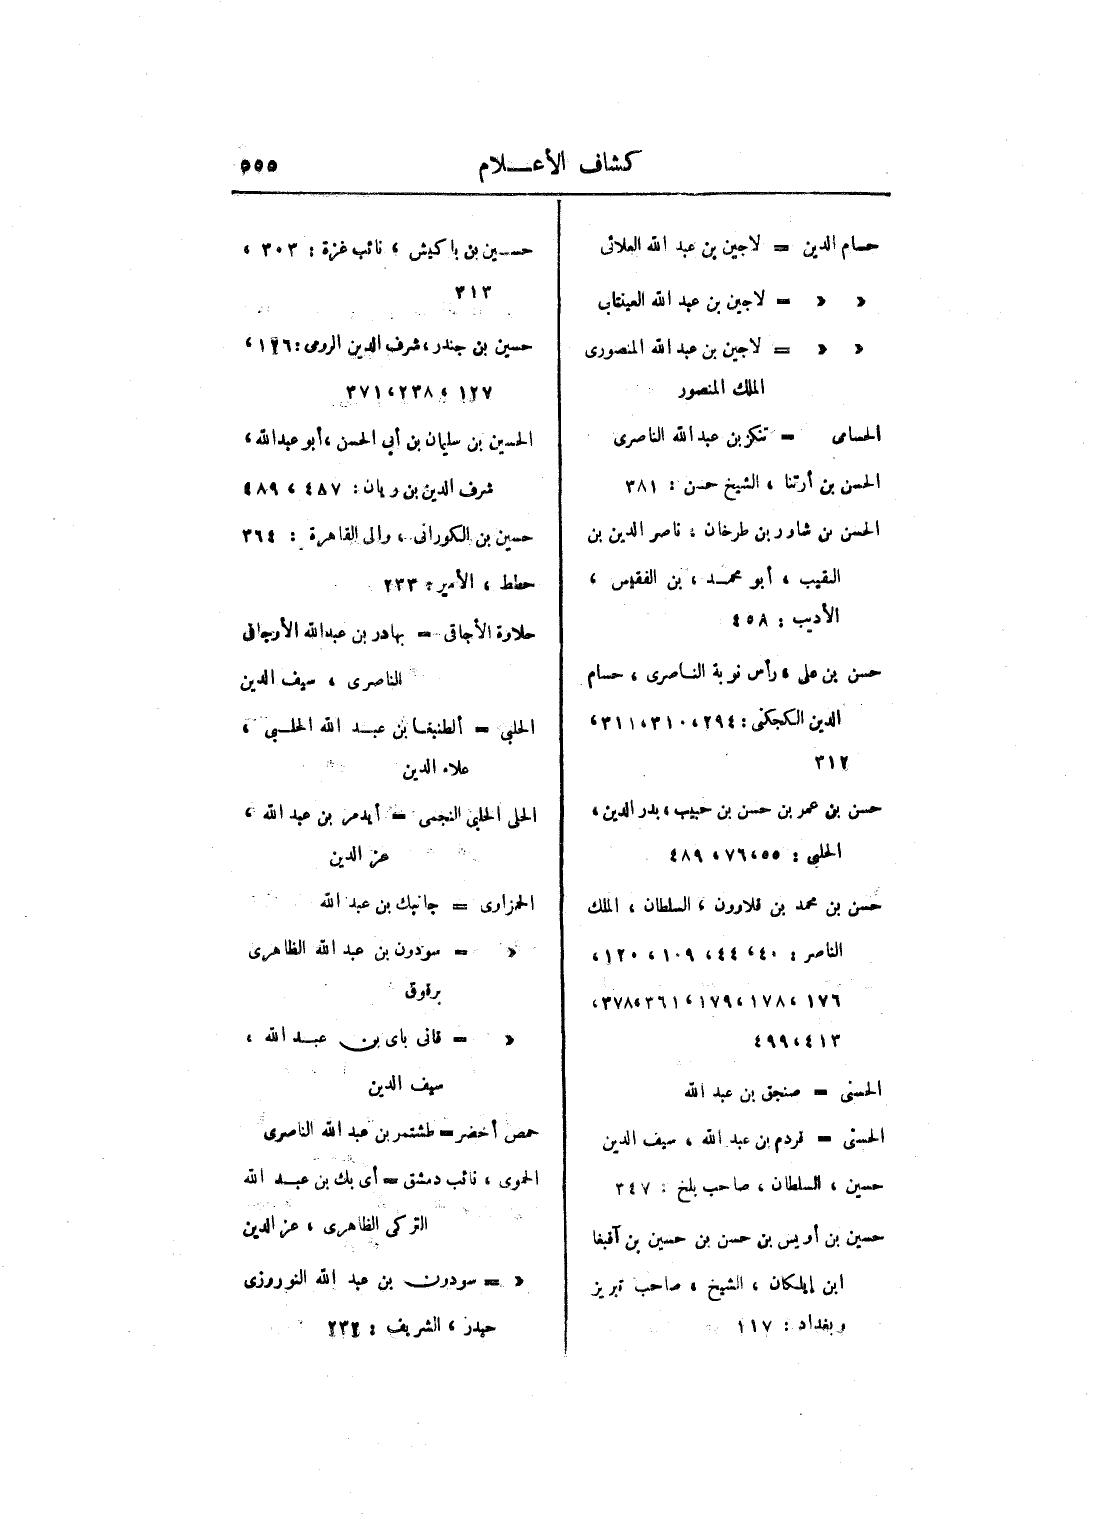 كشاف الأعلام
٥٥٥
حسام الدين = لاجين بن عبد الله العلائى
» » = لاجين بن عبد الله العينتابى
» » = لاجين بن عبد الله المنصورى
الملك المنصور
الحسامى = تنكز بن عبد الله الناصرى
الحسن بن أرتنا ، الشيخ حسن : ٣٨١
الحسن بن شاور بن طرخان ، ناصر الدين بن
النقيب ، أبو محمد ، بن الفقيس ،
الأديب : ٤٥٨
حسن بن على ، رأس نوبة الناصرى ، حسام
الدين الكجكنى : ٢٩٤ ، ٣١٠ ، ٣١١ ،
٣١٢
حسن بن عمر بن حسن بن حبيب ، بدر الدين ،
الحلبى : ٥٥ ، ٧٦ ، ٤٨٩
حسن بن محمد بن قلاوون ، السلطان ، الملك
الناصر : ٤٠ ، ٤٤ ، ١٠٩ ، ١٢٠ ،
١٧٦ ، ١٧٨ ، ١٧٩ ، ٣٦١ ، ٣٧٨ ،
٤١٣ ، ٤٩٩
الحسنى = صنجق بن عبد الله
الحسنى = قردم بن عبد الله ، سيف الدين
حسين ، السلطان ، صاحب بلخ : ٣٤٧
حسين بن أويس بن حسن بن حسين بن آقبغا
ابن إيلكان ، الشيخ ، صاحب تبريز
وبغداد : ١١٧
حسين بن باكيش ، نائب غزة : ٣٠٣ ،
٣١٣
حسين بن جندر ، شرف الدين الرومى : ١٢٦ ،
١٢٧ ، ٢٣٨ ، ٣٧١
الحسين بن سليمان بن أبي الحسن ، أبو عبدالله ،
شرف الدين بن ريان : ٤٨٧ ، ٤٨٩
حسين بن الكورانى ، والى القاهرة : ٣٦٤
حطط ، الأمير : ٢٣٣
حلاوة الأجاقى = بهادر بن عبدالله الأوجاقى
الناصرى ، سيف الدين
الحلبي = ألطنبغا بن عبد الله الحلبي ،
علاء الدين
الحلى الحلبى النجمى = أيدمر بن عبد الله ،
عز الدين
الحمزاوى = جانبك بن عبد الله
» = سودون بن عبد الله الظاهرى
برقوق
» = قانى باى بن عبد الله ،
سيف الدين
حمص أخضر = طشتمر بن عبد الله الناصرى
الحموى ، نائب دمشق = أى بك بن عبد الله
التركى الظاهرى ، عز الدين
» = سودون بن عبد الله النوروزى
حيدر ، الشريف : ٢٣٢